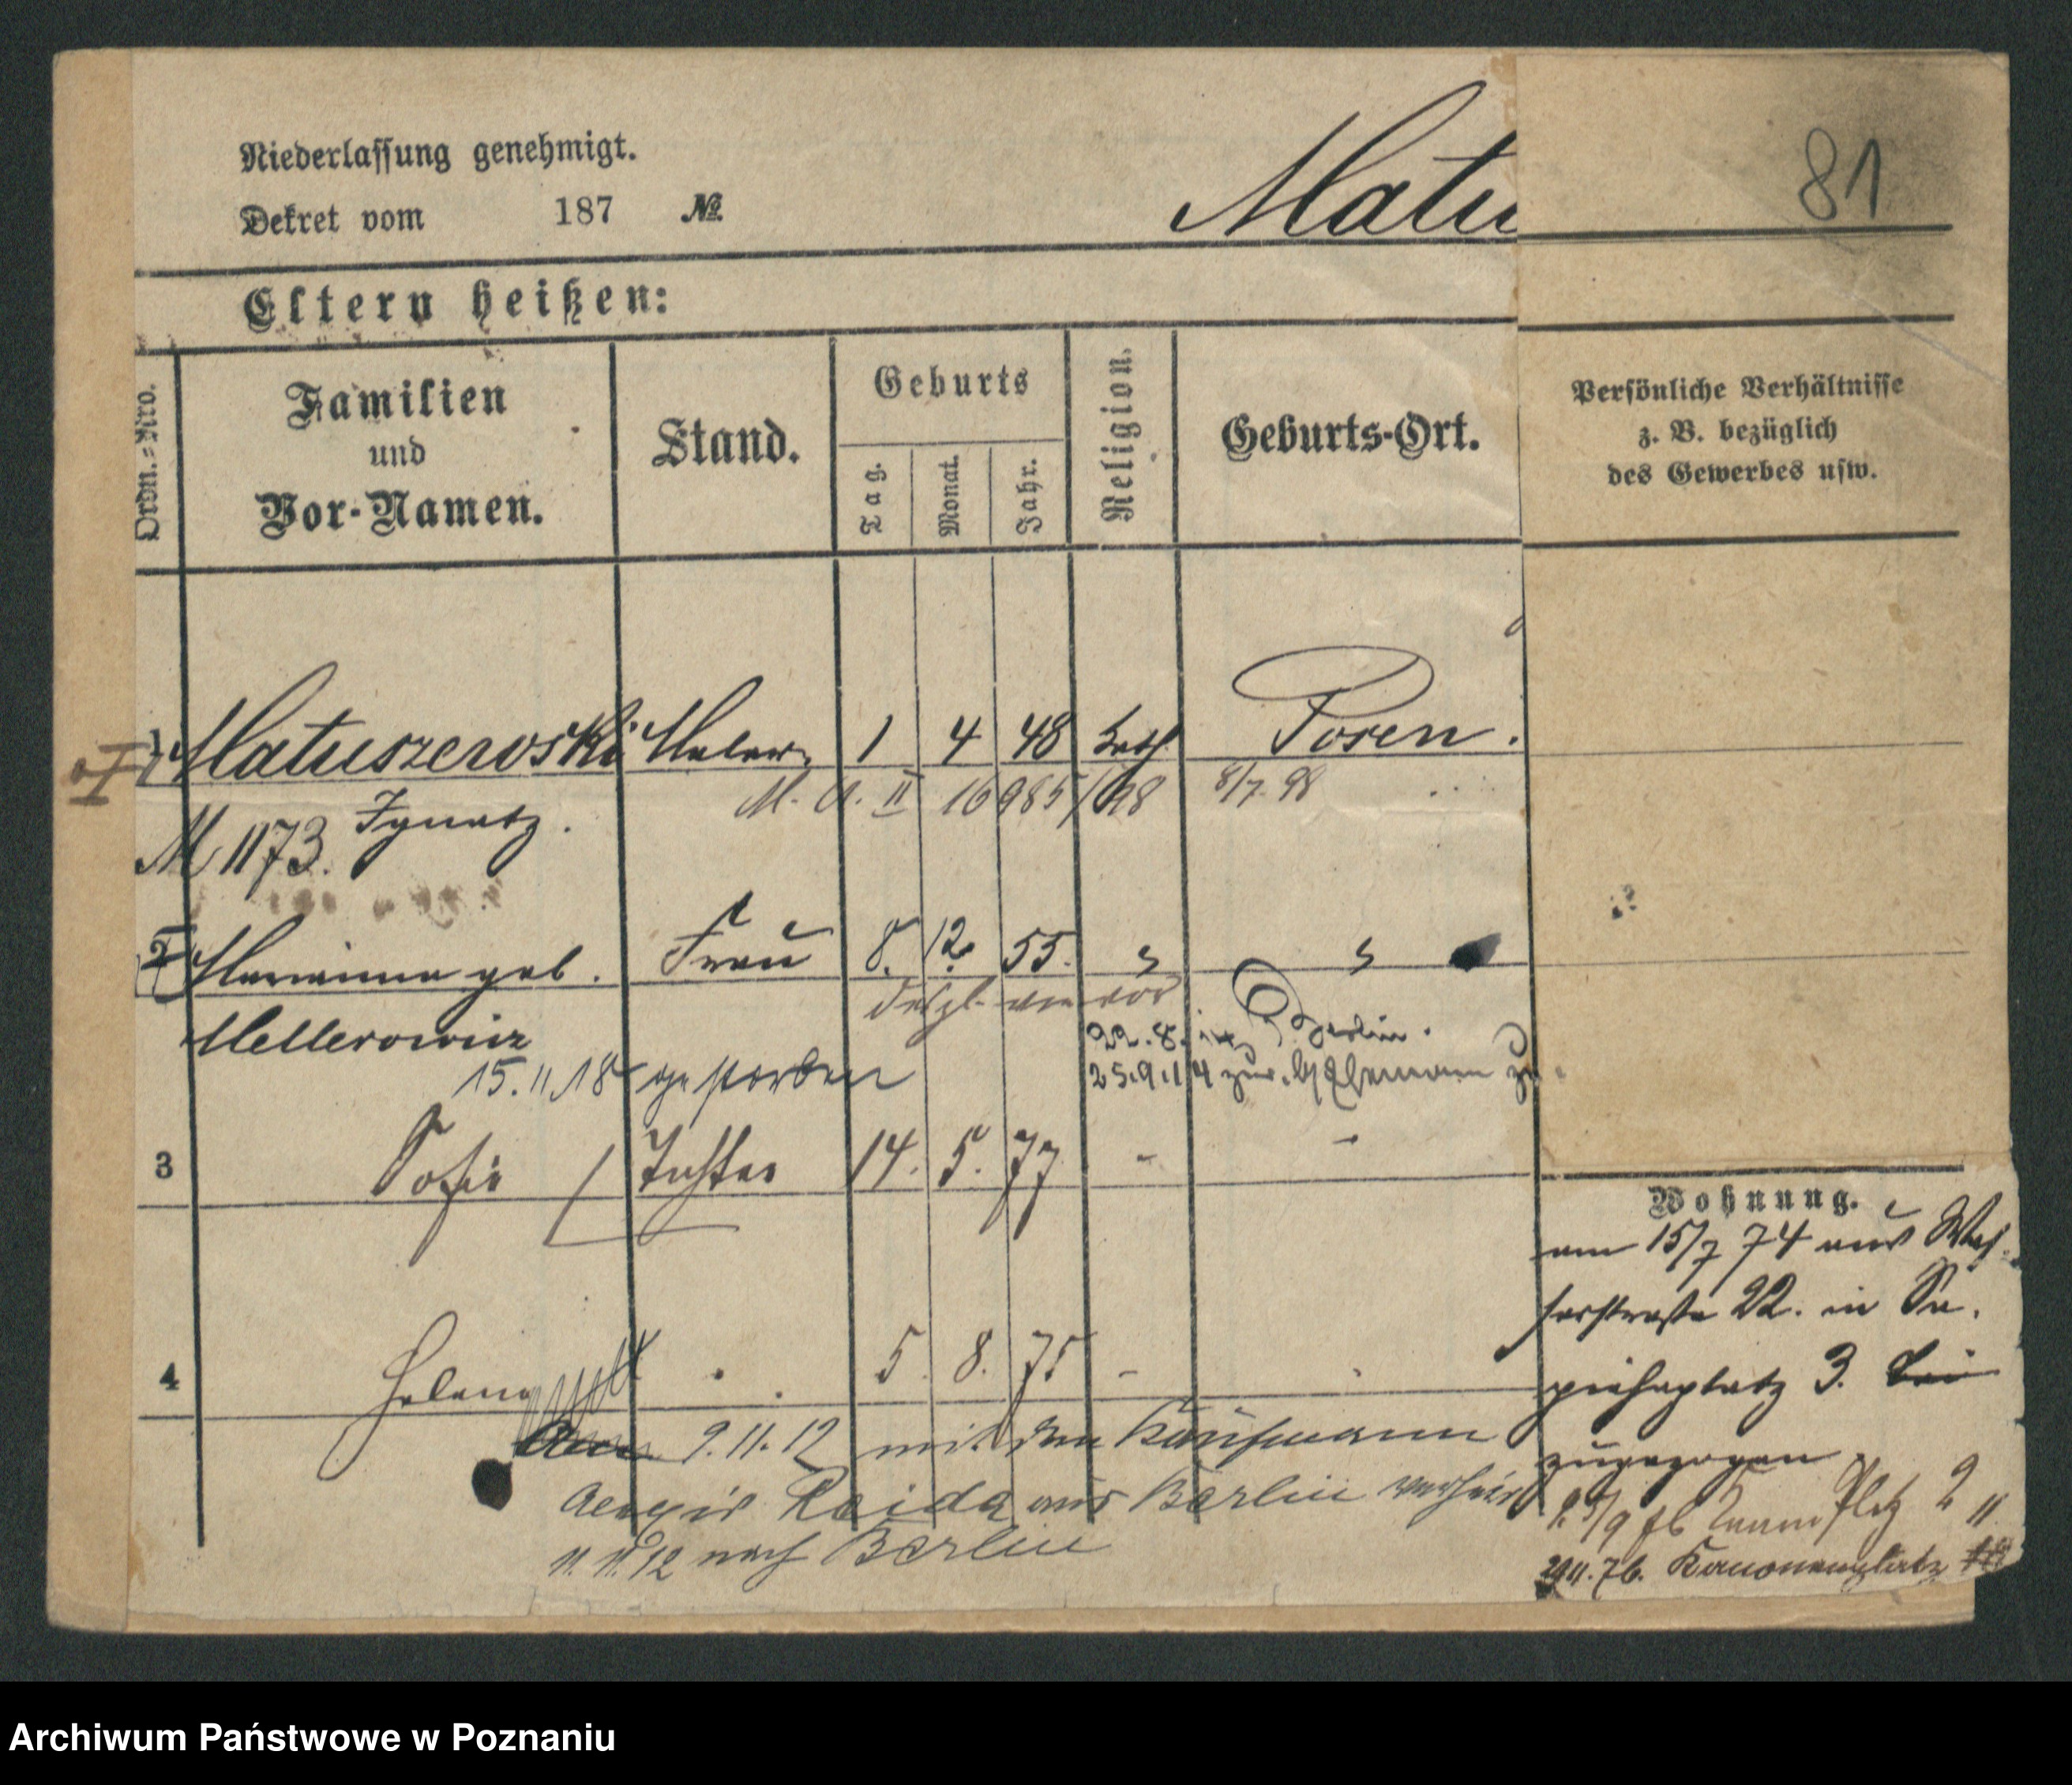 Niederlassung genehmigt.
Dekret vom 187 No.
Matu
81
Eltern heißen:
Ordn.-Nro.
Familien
und
Vor-Namen.
Stand.
Geburts
Tag.
Monat.
Jahr.
Religion.
Geburts-Ort.
Persönliche Verhältnisse
z. B. bezüglich
des Gewerbes usw.
1 Matuszewski Maler 1 4 48 kath. Posen.
M. A. II 16985/98 8/7 98
Ignatz.
M 1173.
2 Marianna geb. Frau 8. 12. 55.
desgl. wie vor
Mellerowicz
22.8.14 Berlin.
15.11.18 gestorben
25.9.14 zur. Ehemann
3 Sofie Tochter 14. 5. 77 -
4 Helena 5. 8. 75 -
Am 9.11.12 mit dem Kaufmann
aus Berlin
11.11.12 nach Berlin
Wohnung.
am 15/7 74 aus Was-
serstraße 22. in Sa-
piehaplatz 3.
zugezogen
Platz 2
11.76. Kanonenplatz
Archiwum Państwowe w Poznaniu